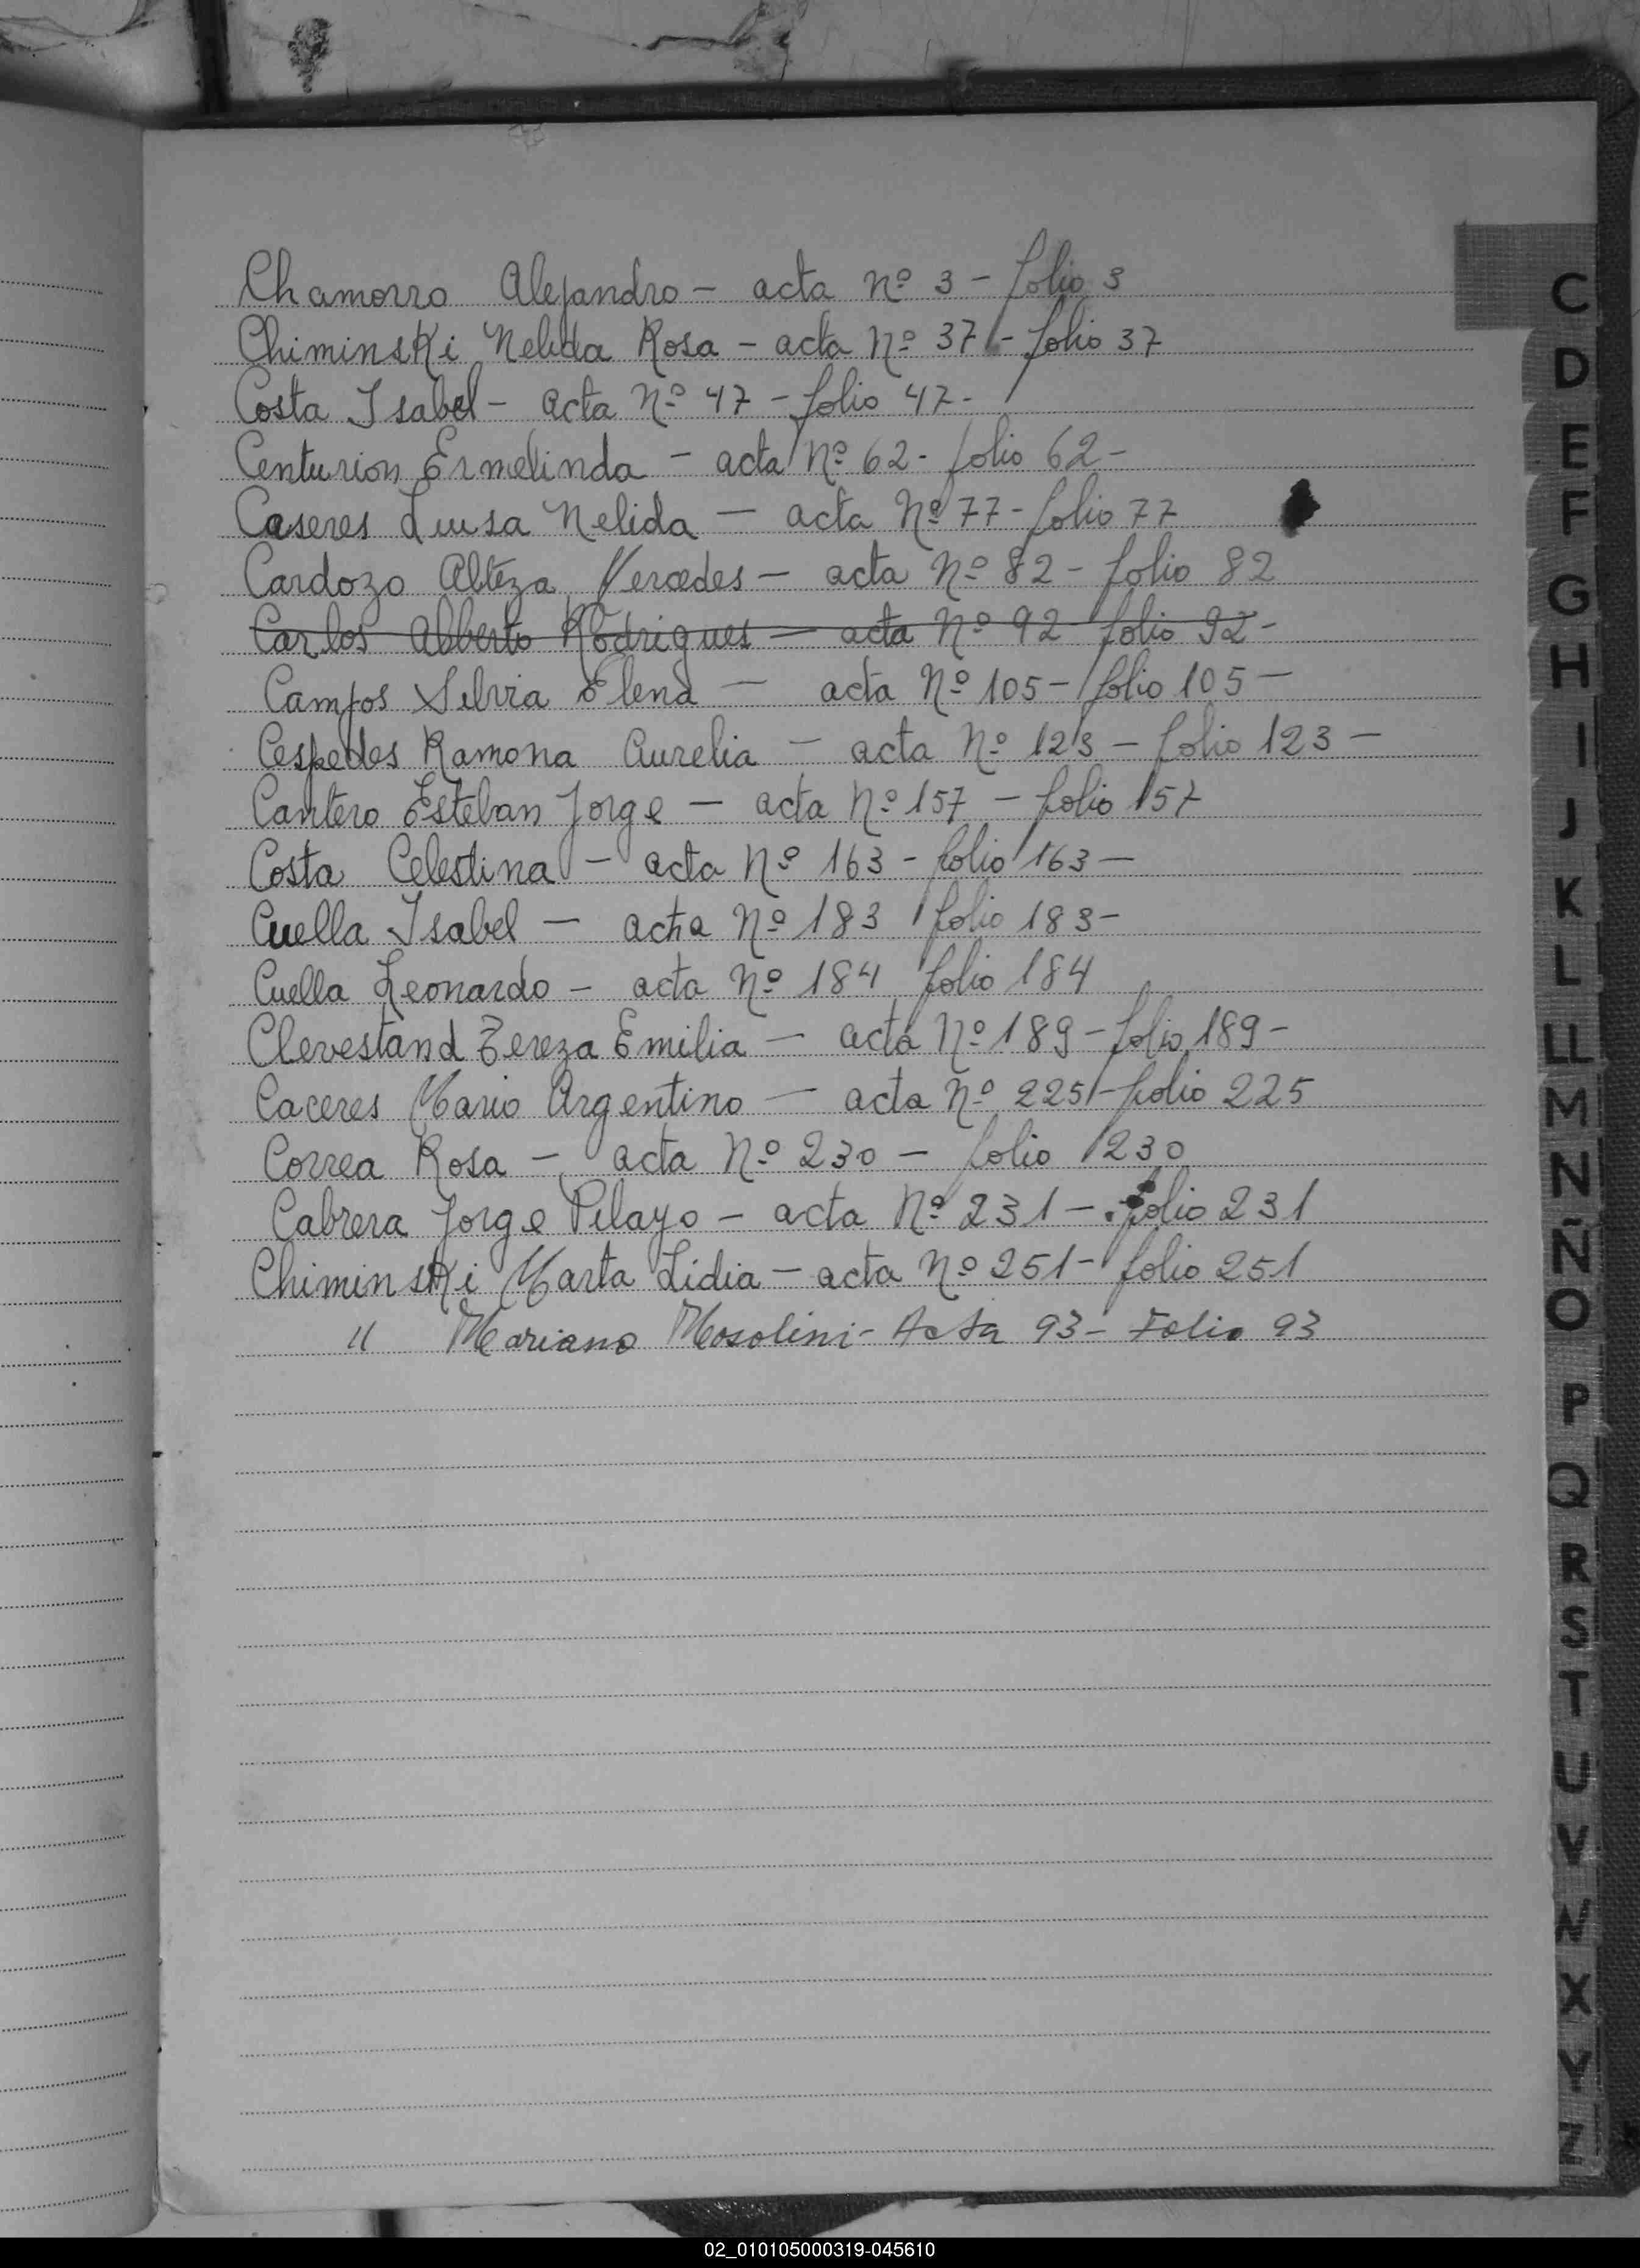 Chamorro Alejandro - acta nº 3 - folio 3
Chiminski Nelida Rosa - acta Nº 37 - folio 37
Costa Isabel - acta Nº 47 - folio 47 -
Centurion Ermelinda - acta Nº 62 - folio 62 -
Caseres Luisa Nelida - acta Nº 77 - folio 77
Cardozo Alteza Mercedes - acta Nº 82 - folio 82
Carlos Alberto Rodrigues - acta Nº 92 folio 92 -
Campos Silvia Elena - acta Nº 105 - folio 105 -
Cespedes Ramona Aurelia - acta Nº 123 - folio 123 -
Cantero Esteban Jorge - acta Nº 157 - folio 157
Costa Celestina - acta Nº 163 - folio 163 -
Cuella Isabel - acta Nº 183 folio 183 -
Cuella Leonardo - acta Nº 184 folio 184
Clevestand Tereza Emilia - acta Nº 189 - folio 189 -
Caceres Mario Argentino - acta Nº 225 - folio 225
Correa Rosa - acta Nº 230 - folio 230
Cabrera Jorge Pilayo - acta Nº 231 - folio 231
Chiminski Marta Lidia - acta Nº 251 - folio 251
" Mariano Mosolini - Acta 93 - Folio 93
C
D
E
F
G
H
I
J
K
L
LL
M
N
Ñ
O
P
Q
R
S
T
U
V
W
X
Y
Z
02_010105000319-045610